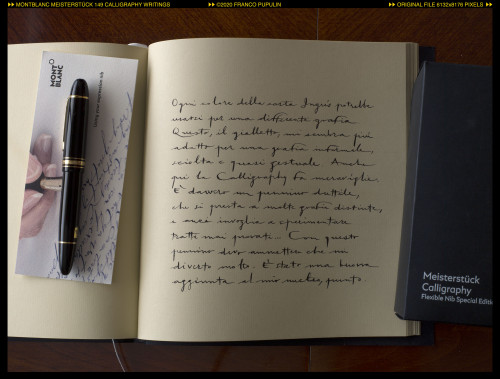 MONTBLANC MEISTERSTÜCK 149 CALLIGRAPHY WRITINGS ©2020 FRANCO PUPULIN ORIGINAL FILE 6132x8176 PIXELS
MONT
BLANC
Ogni colore della carta Ingres potrebbe
usarsi per una differente grafia.
Questo, il gialletto, mi sembra più
adatto per una grafia informale,
sciolta e quasi gestuale. Anche
qui la Calligraphy fa meraviglie.
È davvero un pennino duttile,
che si presta a molte grafie distinte,
e anzi invoglia a sperimentare
tratti mai provati. Con questo
pennino devo ammettere che mi
diverto molto. È stata una buona
aggiunta al mio punto.
Meisterstück
Calligraphy
Flexible Nib Special Editi